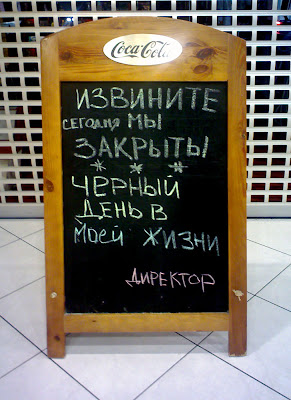 Coca-Cola
ИЗВИНИТЕ
СЕГОДНЯ МЫ
ЗАКРЫТЫ
* * *
ЧЕРНЫЙ
ДЕНЬ В
МОЕЙ ЖИЗНИ
ДИРЕКТОР